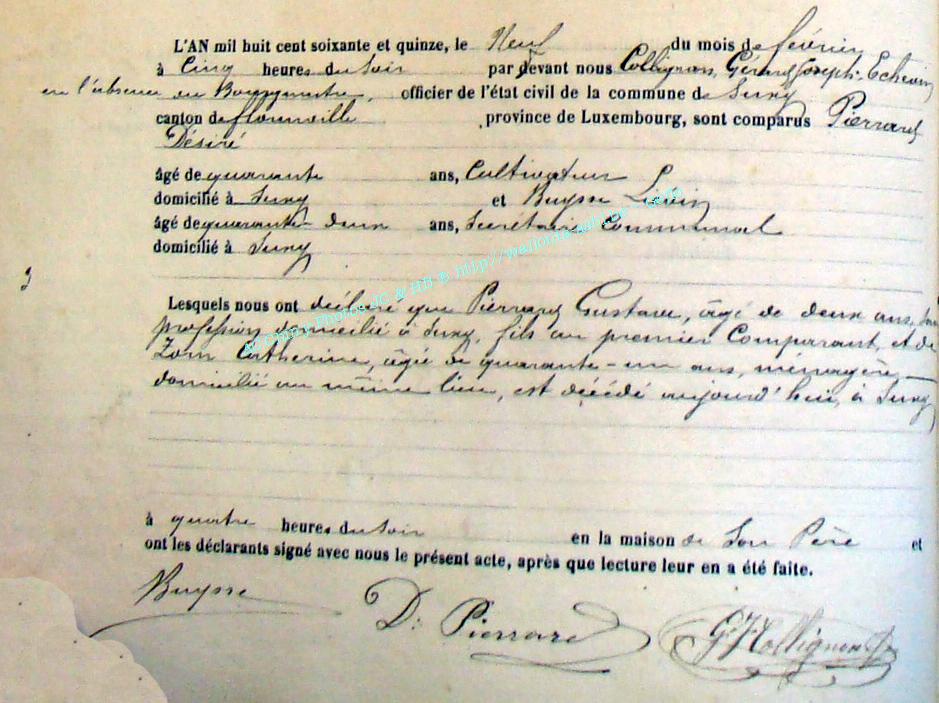 L'AN mil huit cent soixante et quinze, le Neuf du mois de février
à Cinq heures du Soir par devant nous Collignon, Gérard Joseph, Echevin
en l'absence du Bourgmestre, officier de l'état civil de la commune de Sugny
canton de florenville province de Luxembourg, sont comparus Pierrard
Désiré
âgé de quarante ans, Cultivateur
domicilié à Sugny et Buysse Liévin
âgé de quarante-deux ans, Secrétaire Communal
domicilié à Sugny
3
Lesquels nous ont déclaré que Pierrard Gustave, âgé de deux ans, sans
profession, domicilié à Sugny, fils du premier Comparant, et de
Catherine, âgée de quarante-un ans, ménagère,
domicilié au même lieu, est décédé aujourd'hui, à Sugny
à quatre heures du Soir en la maison de Son Père et
ont les déclarants signé avec nous le présent acte, après que lecture leur en a été faite.
Buysse D. Pierrard G J Collignon
Photos JC & HB © http://